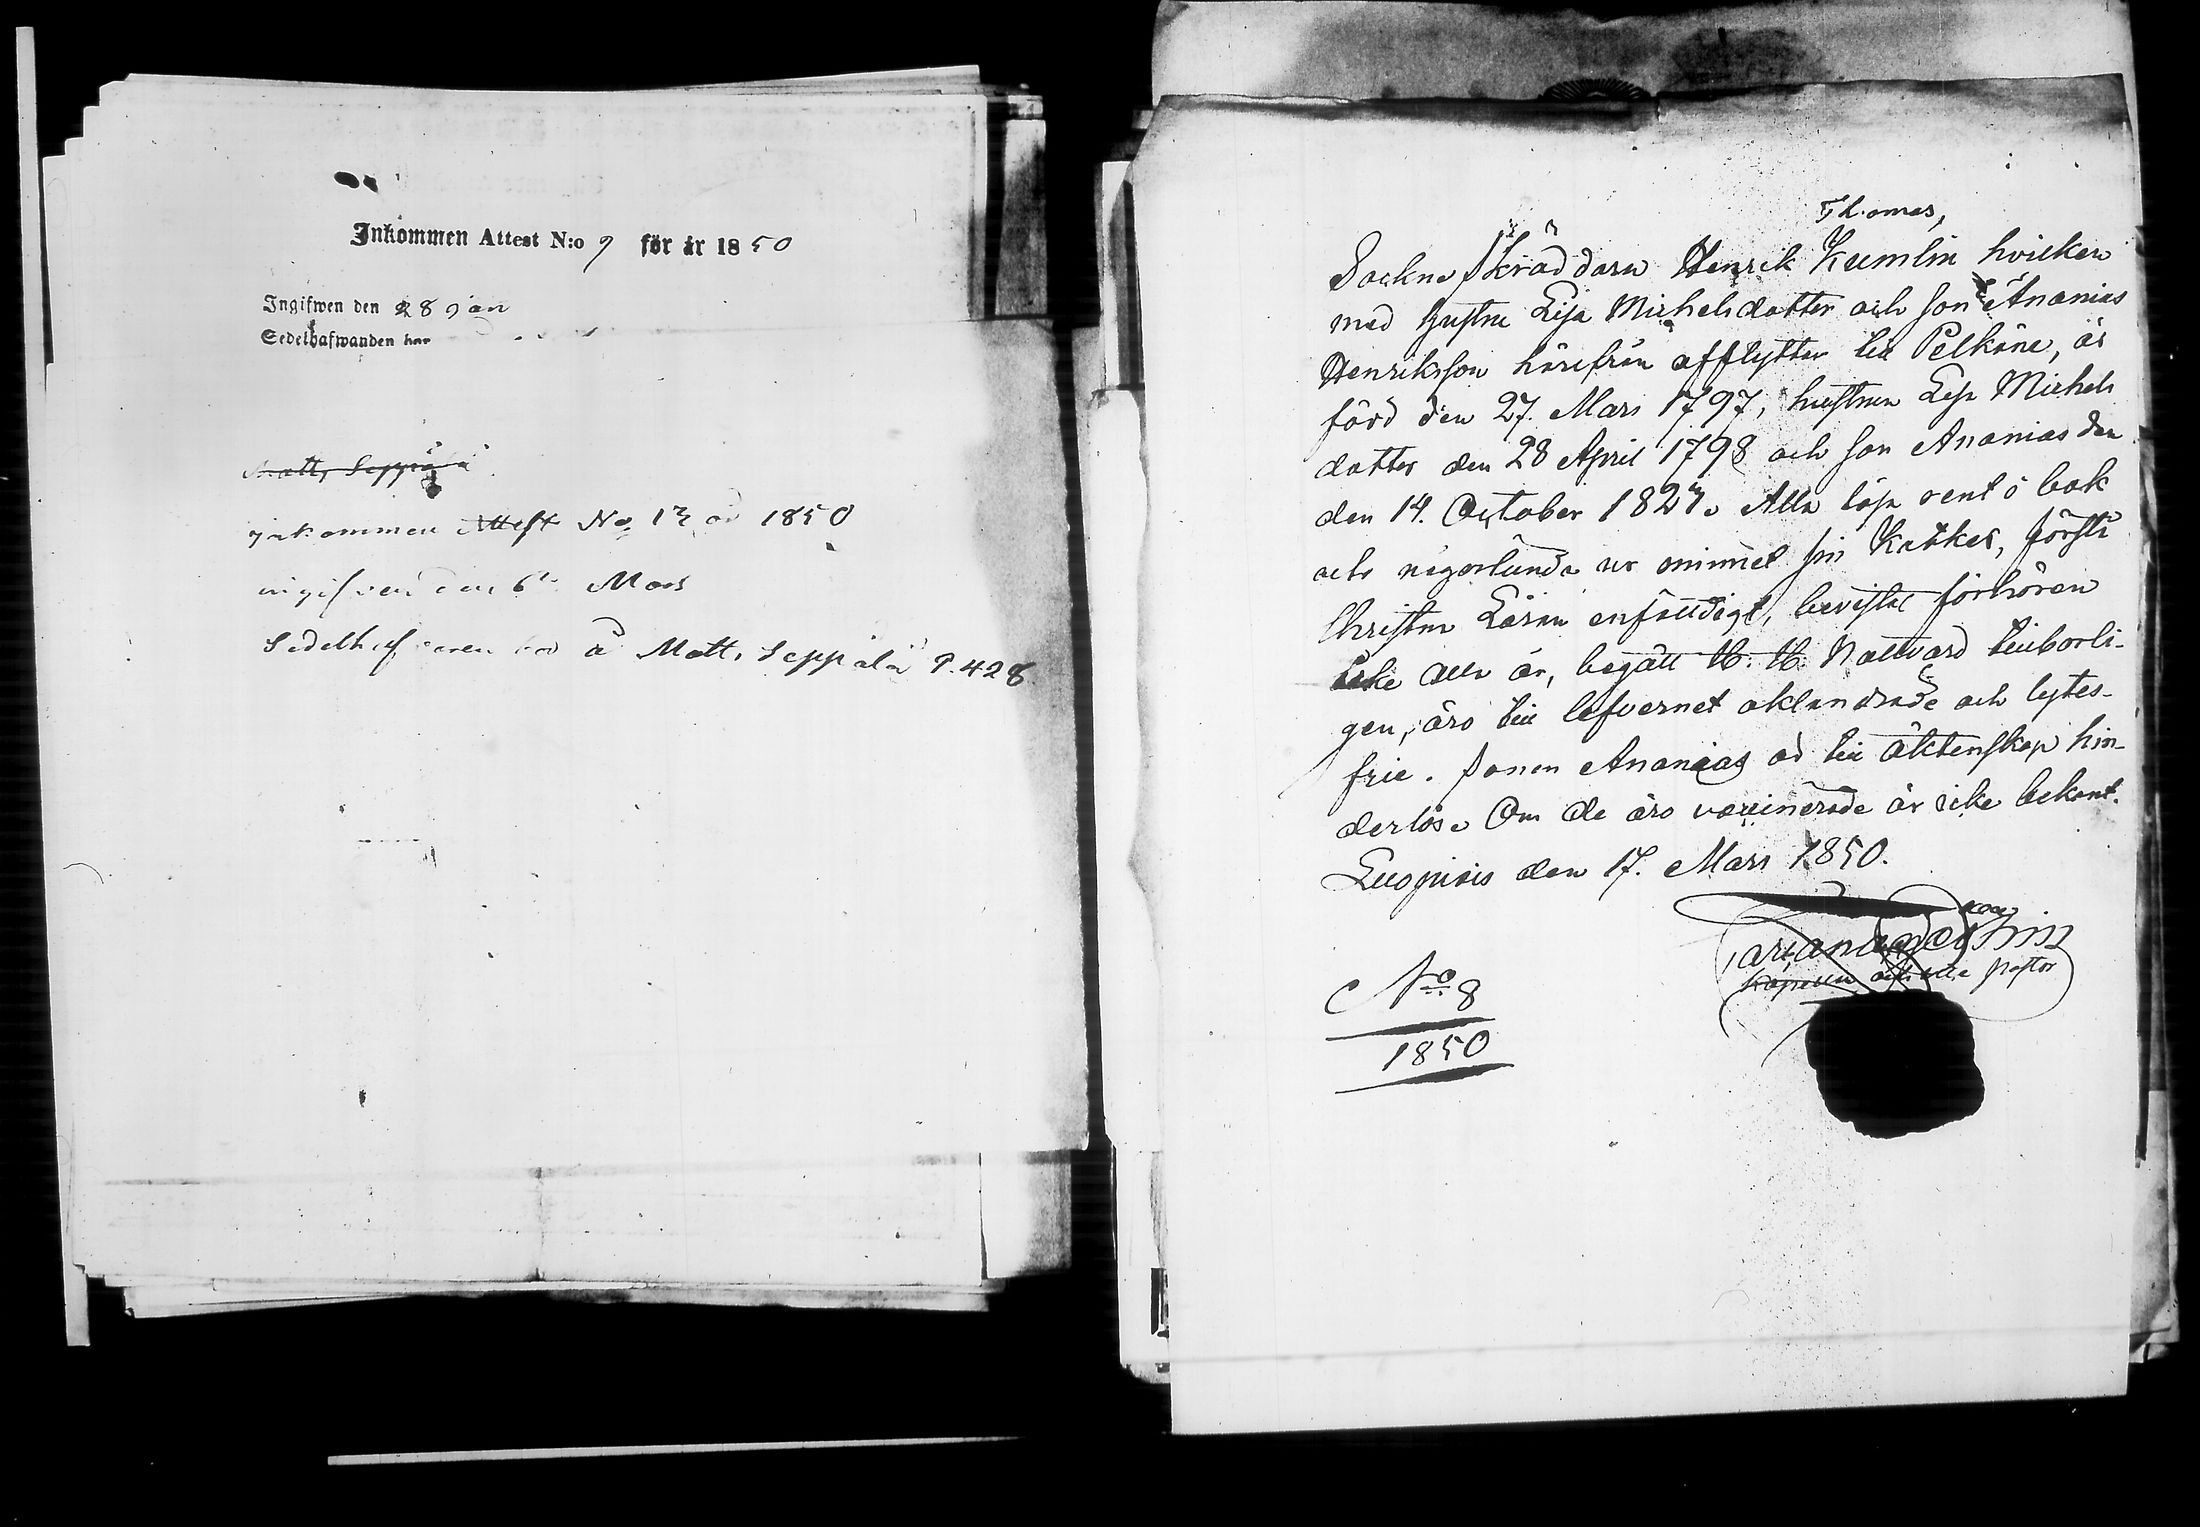 Inkommen Attest N:o 9 för år 1850
Ingifwen den 28 Jan
Sedelhafwanden har
Matts Seppälä
Inkommen Attest No 13 år 1850
ingifven den 6 Mars
Sedelhafvaren bor å Matts Seppälä P. 428
Thomas,
Sockne Skräddaren Henrik Kumlin hvilken
med hustru Lisa Michelsdotter och son Ananias
Henriksson härifrån afflytter till Pelkäne, är
född den 27 Mars 1797, hustrun Lisa Michels
dotter den 28 April 1798 och son Ananias den
den 14. October 1827. Alla läsa rent i bok
och någorlunda ur minnet sin Katkes, förstå
Christna Läran enfaldigt, bevistat förhören
icke alla år, begått H. H. Nattvard tillbörli-
gen, äro till lefvernet oklandrade och lytes-
frie. Sonen Ananias är till äktenskap hin-
derlös. Om de äro vaccinerade är icke bekant.
Luopiois den 17. Mars 1850.
No 8
1850